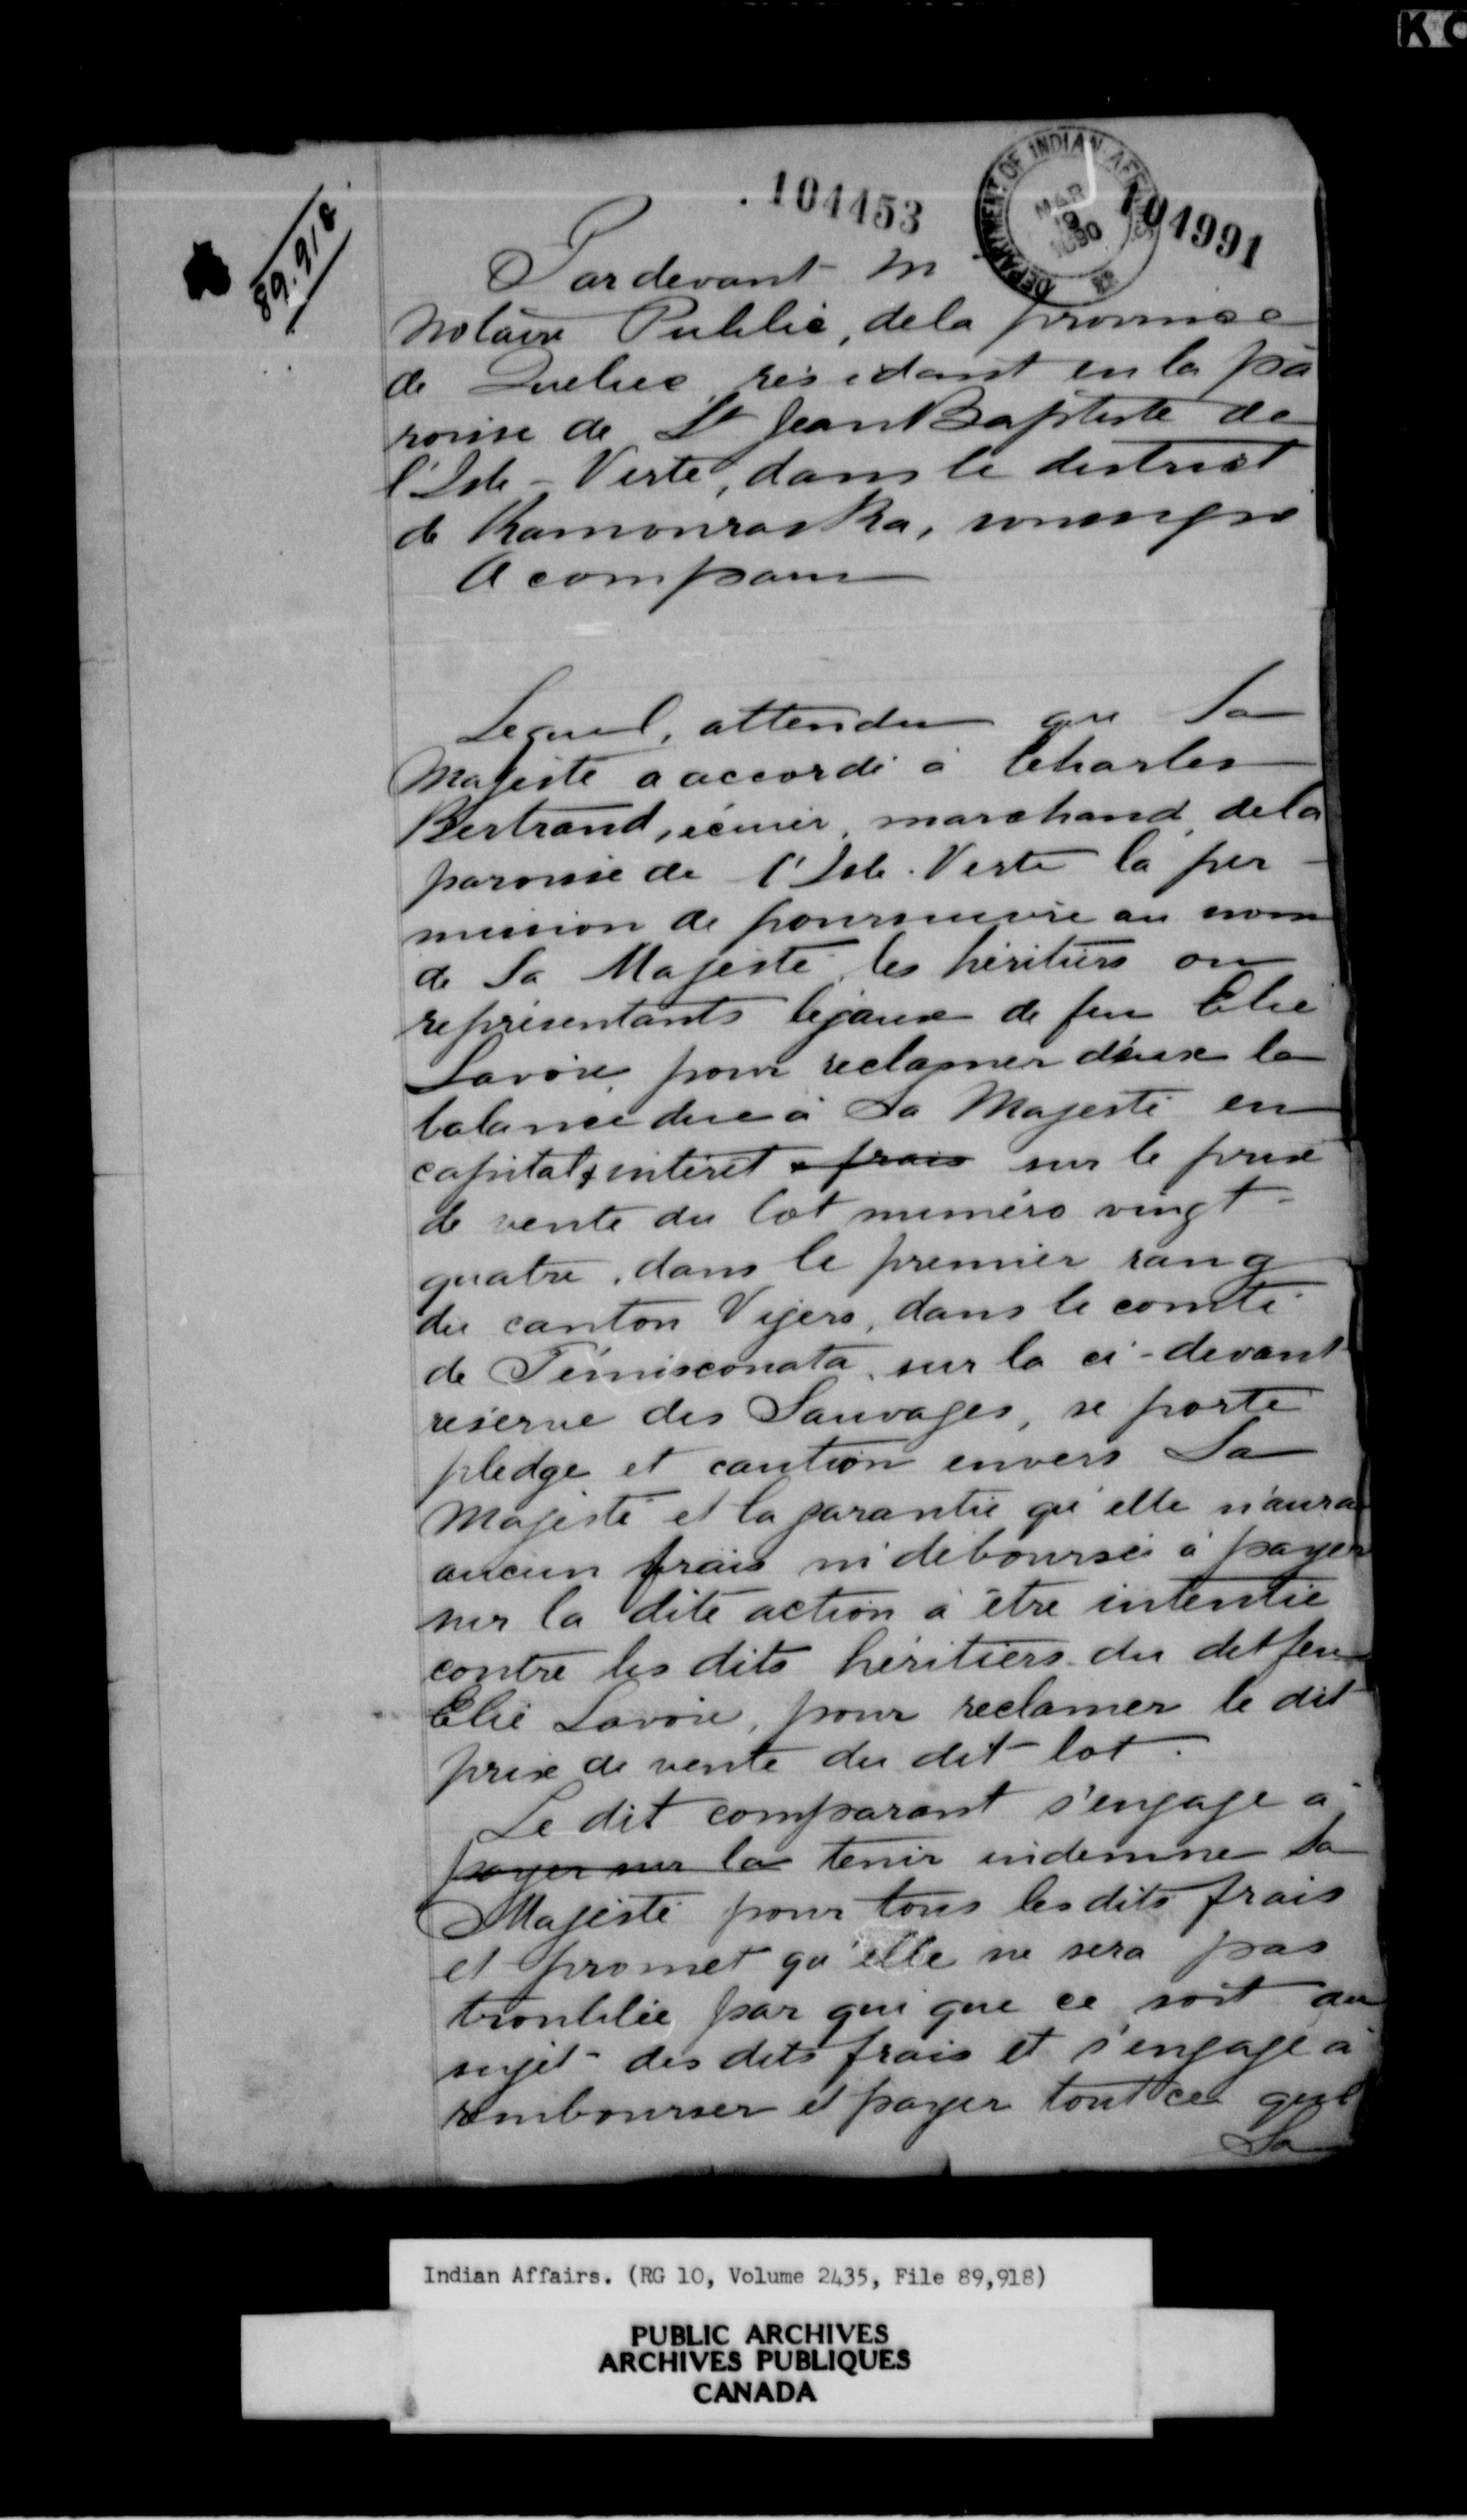 KC
104453
DEPARTMENT OF INDIAN AFFAIRS
MAR 19 1890
104991
89.918
Pardevant M
Notaire Public, de la province
de Quebec résidant en la pa
roisse de St Jean Baptiste de
l'Isle-Verte, dans le district
de Kamouraska, soussigné
A comparu
Lequel, attendu que Sa
Majesté a accordé à Charles
Bertrand, écuier, marchand, de la
paroisse de l'Isle-Verte la per-
mission de poursuivre au nom
de Sa Majesté les héritiers ou
représentants légaux de feu Elie
Lavoie, pour reclamer d'eux la
balance due à Sa Majesté en
capital & intéret & frais sur le prix
de vente du lot numéro vingt-
quatre, dans le premier rang
du canton Vigers, dans le comté
de Témiscouata, sur la ci-devant
réserve des Sauvages, se porte
pledge et caution envers Sa
Majesté et la garantie qu'elle n'aura
aucun frais ni déboursés à payer
sur la dite action à être intentée
contre les dits héritiers du dit feu
Elie Lavoie, pour reclamer le dit
prix de vente du dit lot.
Le dit comparant s'engage à
payer sur la tenir indemne Sa
Majesté pour tous les dits frais
et promet qu'elle ne sera pas
troublée par qui que ce soit au
sujet des dits frais et s'engage à
rembourser et payer tout ce que
Sa
Indian Affairs. (RG 10, Volume 2435, File 89,918)
PUBLIC ARCHIVES
ARCHIVES PUBLIQUES
CANADA